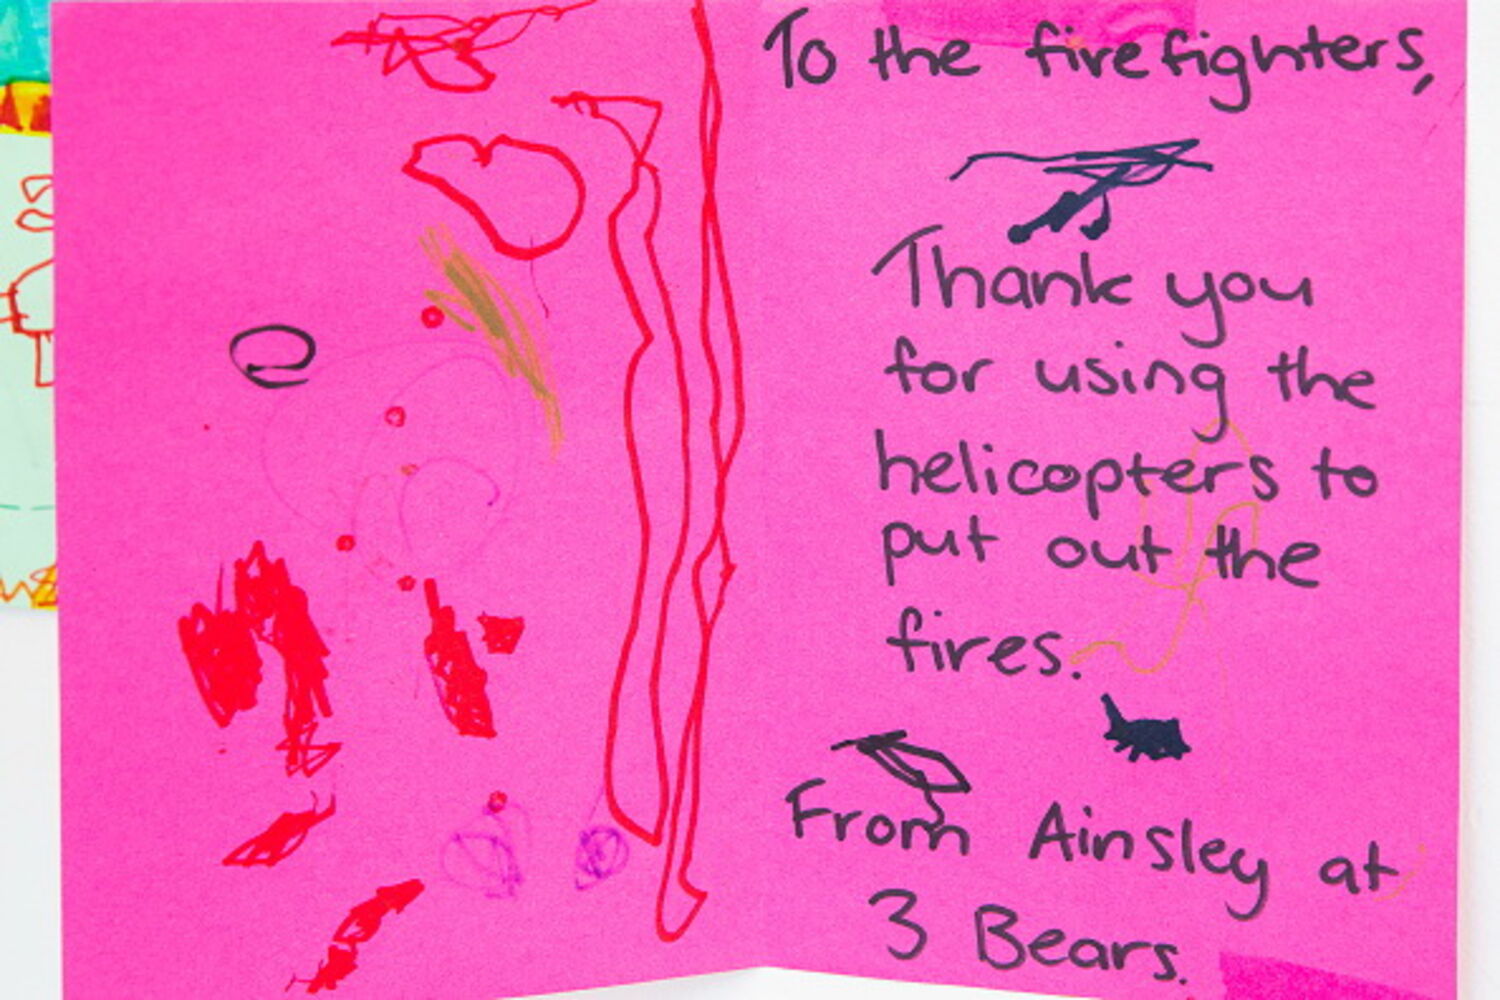 To the firefighters,
Thank you
for using the
helicopters to
put out the
fires.
From Ainsley at
3 Bears.